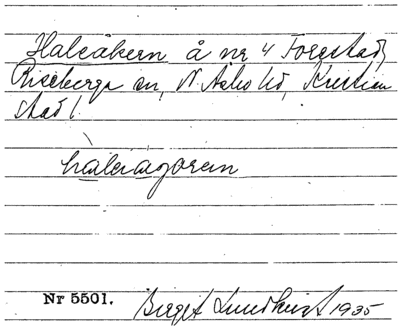 Haleåkern å nr 4 Forestad,
Riseberga sn, N. Åsbo hd, Kristian
stad l.
Nr 5501. Birgit Lundkvist 1935